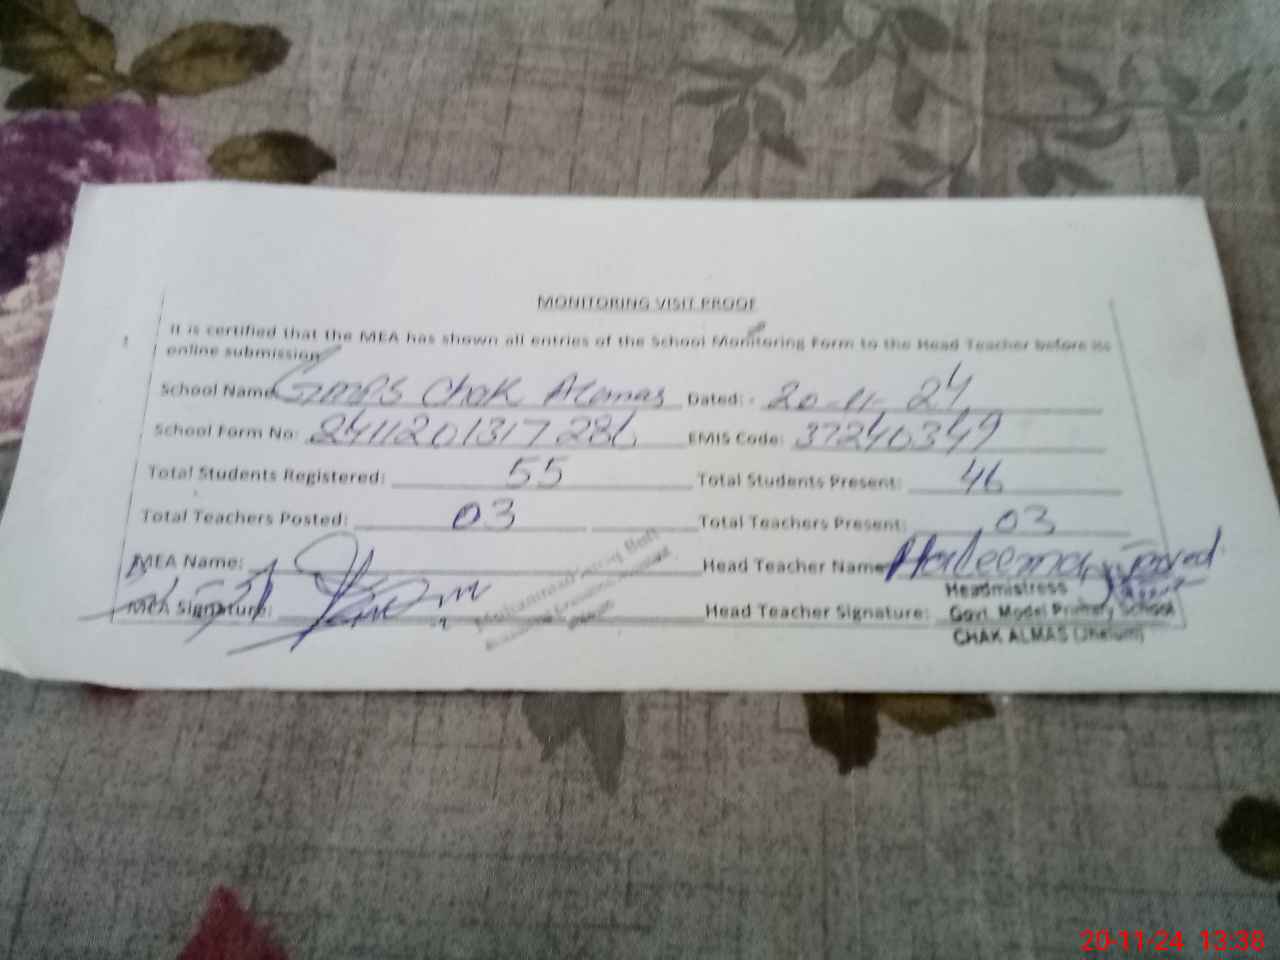 MONITORING VISIT PROOF
It is certified that the MEA has shown all entries of the School Monitoring Form to the Head Teacher before its
online submission
School Name GMPS Chak Almas Dated: 20-11-24
School Form No: 2411201317286 EMIS Code: 37240349
Total Students Registered: 55 Total Students Present: 46
Total Teachers Posted: 03 Total Teachers Present: 03
MEA Name: Head Teacher Name Haleema Javed
Headmistress
MEA Signature: Head Teacher Signature: Govt. Model Primary School
CHAK ALMAS (Jhelum)
20-11-24 13:38